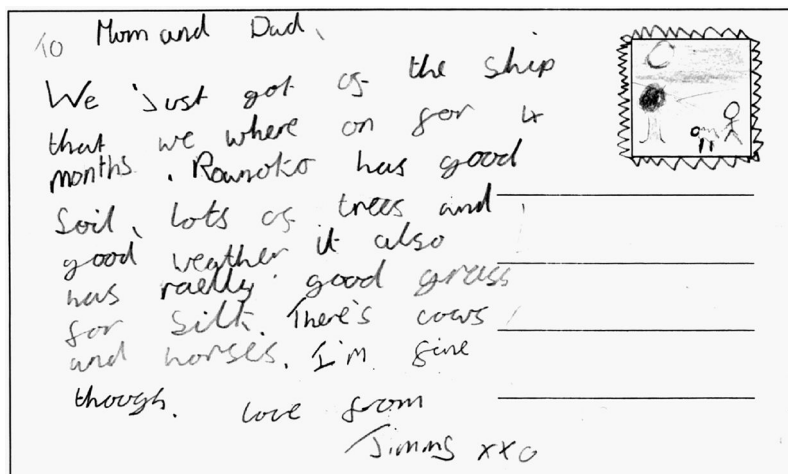 To Mom and Dad,
We just got of the ship
that we where on for 4
months. Roanoko has good
Soil, lots of trees and
good weather it also
has raelly good grass
for Silk. There's cows
and horses. I'm fine
though. love from
Jimmy xxo